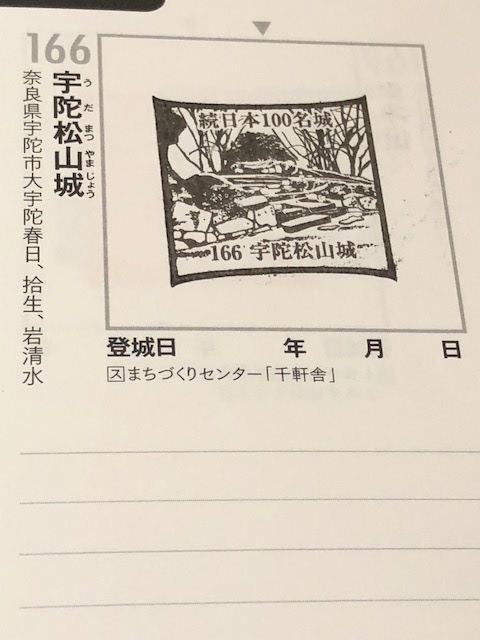 166
宇陀松山城
うだまつやまじょう
奈良県宇陀市大宇陀春日、拾生、岩清水
続日本100名城
166 宇陀松山城
登城日 年 月 日
スまちづくりセンター「千軒舎」